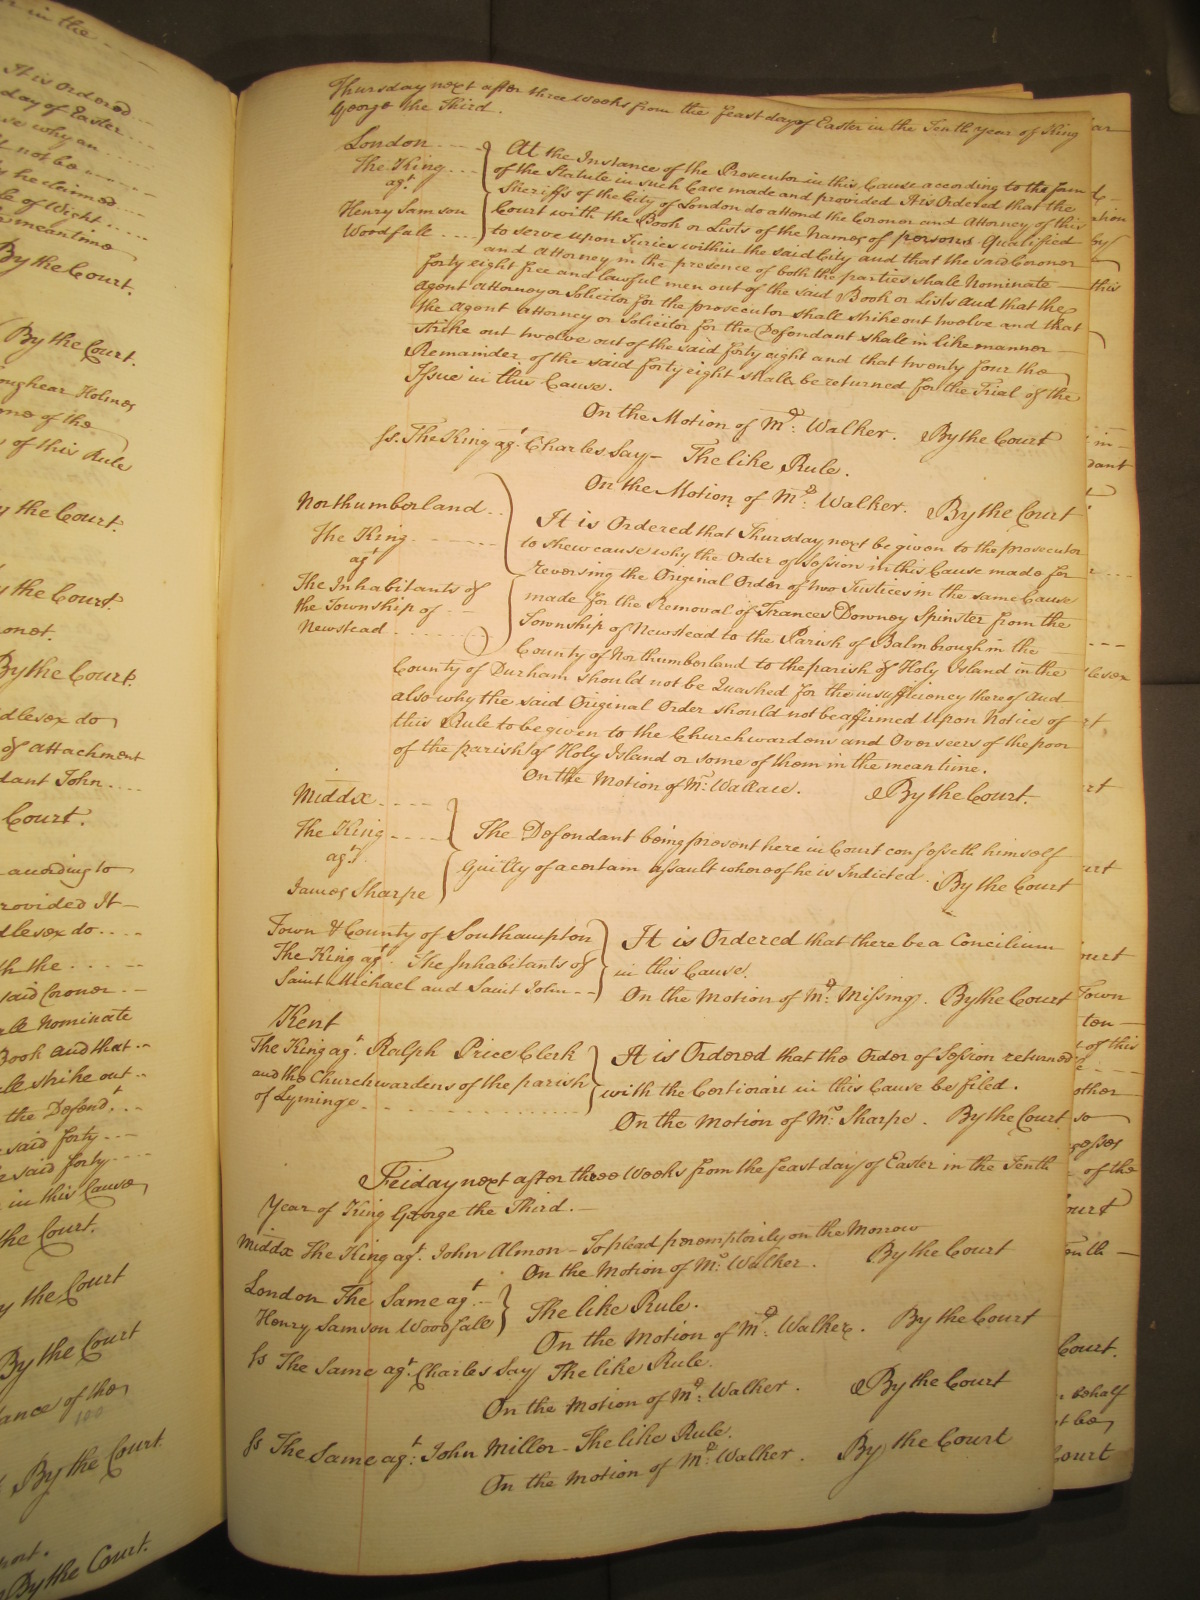 in the
It is Ordered
day of Easter
why an
not be
he claimed
Isle of Wight
meantime
By the Court.
By the Court.
Holmes
one of the
of this Rule
the Court.
the Court.
By the Court.
do
of attachment
John
Court.
according to
provided It
do
th the
said Coroner
Nominate
Book and that
strike out
the Defend.t
said forty
said forty
in this Cause
the Court.
the Court
By the Court
100
By the Court
By the Court.
Thursday next after three weeks from the feast day of Easter in the Tenth Year of King
George the Third.
London
The King
ag.t
Henry Samson
Woodfall
At the Instance of the Prosecutor in this Cause according to the form
of the Statute in such Case made and provided It is Ordered that the
Sheriffs of the City of London do attend the Coroner and Attorney of this
Court with the Book or Lists of the Names of persons Qualified
to serve upon Juries within the said City and that the said Coroner
and Attorney in the presence of both the parties shall Nominate
forty eight free and lawful men out of the said Book or Lists And that the
Agent Attorney or Solicitor for the prosecutor shall strike out twelve and that
the Agent attorney or Solicitor for the Defendant shall in like manner
strike out twelve out of the said forty eight and that twenty four the
Remainder of the said forty eight shall be returned for the Trial of the
Issue in this Cause.
On the Motion of Mr. Walker. By the Court
ss. The King ag.t Charles Say - The like Rule.
On the Motion of Mr. Walker. By the Court
Northumberland
The King
ag.t
The Inhabitants of
the Township of
Newstead
It is Ordered that Thursday next be given to the prosecutor
to shew cause why the Order of Session in this Cause made for
reversing the Original Order of two Justices in the same Cause
made for the Removal of Frances Downey Spinster from the
Township of Newstead to the Parish of Balmbrough in the
County of Northumberland to the parish of Holy Island in the
County of Durham should not be Quashed for the insufficiency thereof And
also why the said Original Order should not be affirmed Upon Notice of
this Rule to be given to the Churchwardens and Overseers of the poor
of the parish of Holy Island or some of them in the mean time.
On the Motion of Mr. Wallace. By the Court.
Middx
The King
ag.t
James Sharpe
The Defendant being present here in Court confesseth himself
Guilty of a certain assault whereof he is Indicted. By the Court
Town & County of Southampton
The King ag.t The Inhabitants of
Saint Michael and Saint John
It is Ordered that there be a Concilium
in this Cause.
On the Motion of Mr. Missing. By the Court
Kent
The King ag.t Ralph Price Clerk
and the Churchwardens of the parish
of Lyminge
It is Ordered that the Order of Session returned
with the Certiorari in this Cause be filed.
On the Motion of Mr. Sharpe. By the Court
Friday next after three Weeks from the feast day of Easter in the Tenth
Year of King George the Third.
Middx The King ag.t John Almon - To plead peremptorily on the Morrow
On the Motion of Mr. Walker. By the Court
London The Same ag.t
Henry Samson Woodfall
The like Rule.
On the Motion of Mr. Walker. By the Court
ss The Same ag.t Charles Say The like Rule.
On the Motion of Mr. Walker. By the Court
ss The Same ag.t John Miller - The like Rule.
On the Motion of Mr. Walker. By the Court
this
Town
of this
other
so
of the
Court.
behalf
be
Court